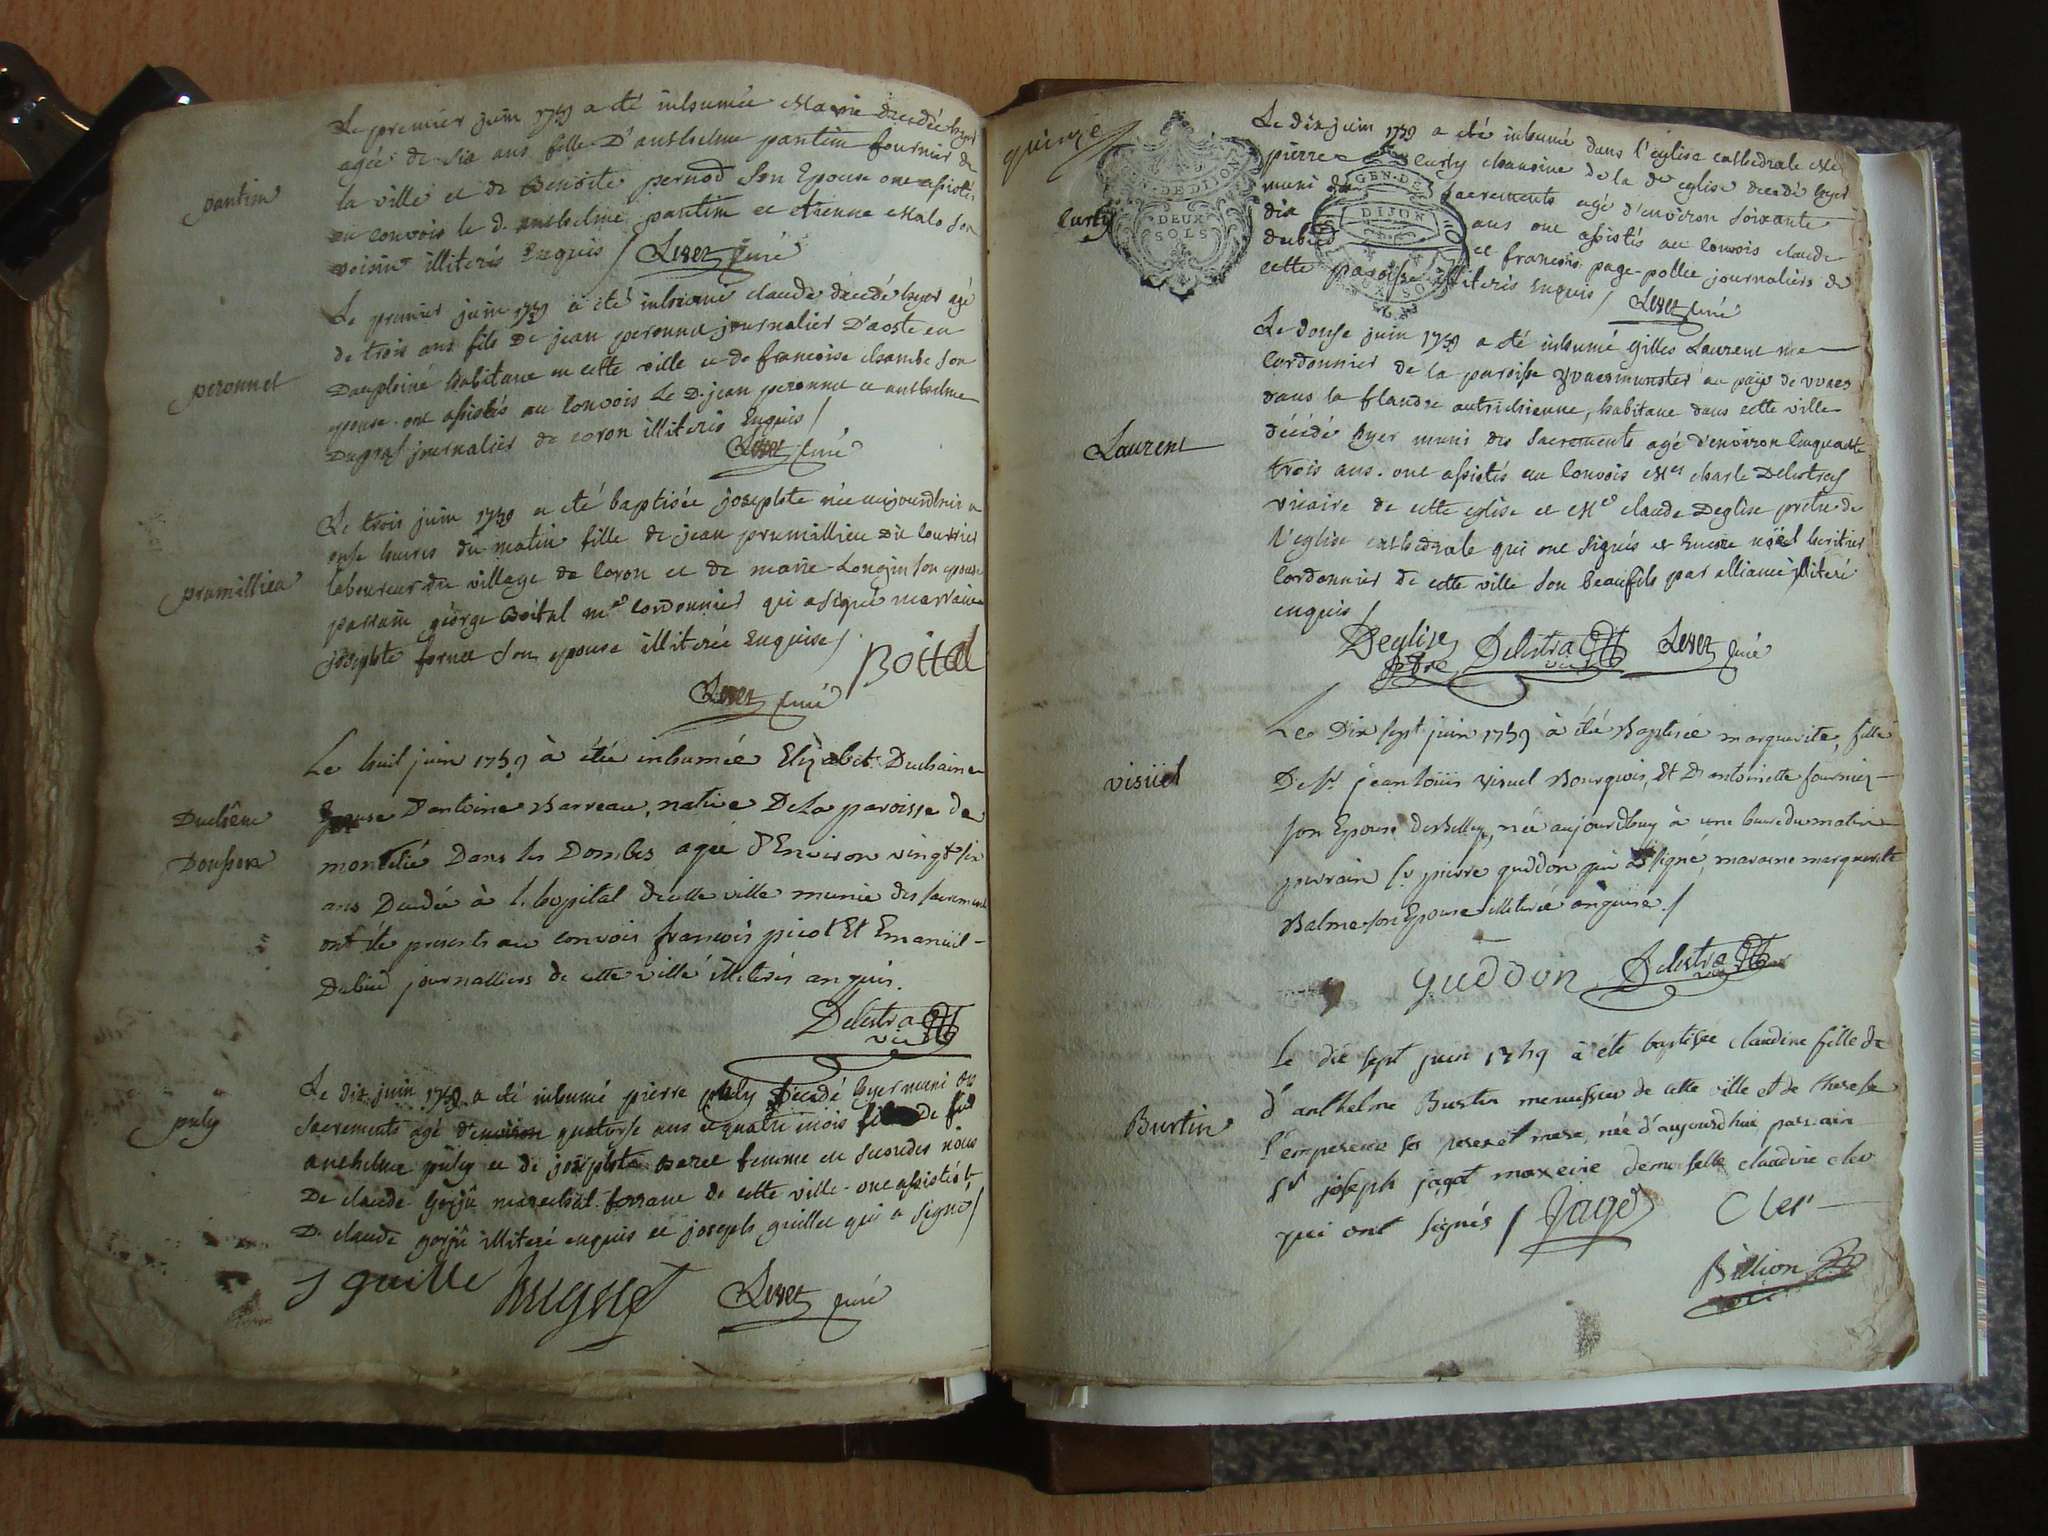 Le premier juin 1759 a eté inhumée Marie decedée hyer
agée de six ans fille D'anthelme pantin fournier de
pantin
la ville et de Benoite pernod son Epouse ont assistés
au convois le d. anthelme pantin et etienne Malo son
voisin illiterés Enquis / curé
Le premier juin 1759 a eté inhumé claude décédé hyer agé
de trois ans fils De jean peronnet journalier D'aoste en
peronnet
Dauphiné habitant en cette ville et de francoise chambe son
epouse. ont assistés au convois Le D. jean peronnet et anthelme
Dugras journalier de coron illiterés Enquis /
curé
Le trois juin 1759 a eté baptisée josephte née aujourdhui a
onse heures du matin fille de jean prumillieu Dit courrier
prumillieu
laboureur du village de coron et de marie Longin son epouse
parrain george Boital me cordonnier qui a signé marraine
josephte fornet son epouse illiterée Enquise /
Boital
curé
Le huit juin 1759 à été inhumée Elizabet Duchaine
Duchêne
Epouse D'antoine Barreau, native De La paroisse de
Dousson
Dans les Dombes agée D'Environ vingt six
ans Decedée à l. hopital de cette ville munie des sacrements
ont été presents au convois francois picot Et Emanüel
Dubied journalliers de cette ville illiterés anquis.
Delestra
vic
Le dix juin 1759 a eté inhumé pierre puly décedé hyer muni des
puly
sacrements agé d'environ quatorse ans et quatre mois fils de feu
anthelme püly et de josephte Darel femme en secondes nôces
De claude gojjû marechal ferrant de cette ville. ont assistés le
D. claude gojjû illiteré enquis et joseph guillet qui a signé /
J guille hugne curé
quinze
GEN. DE DIJON
DEUX
SOLS
GEN. DE
DIJON
Le dix juin 1759 a eté inhumé dans l'eglise cathedrale Me
pierre curty chanoine de la de eglise decedé hyer
muni des sacrements agé d'environ soixante
curty
dix ans ont assistés au convois claude
dubied et francois page-pollet journaliers de
cette paroisse illiterés Enquis /
curé
Le douse juin 1759 a eté inhumé gilles Laurent me
cordonnier de la paroisse Waesmunster au païs de vvaes
dans la flandre autrichienne, habitant dans cette ville
Laurent
décédé hyer muni des sacrements agé d'environ cinquante
trois ans. ont assistés au convois Mes charle Delestras
vicaire de cette eglise et Me claude Deglise pretre de
L'eglise cathedrale qui ont signés et encore nöel heritier
cordonnier de cette ville son beaufils par alliance illiteré
enquis /
Deglise Delestra curé
ptre vic
Le Dix sept juin 1759 à été Baptisée marguerite, fille
visüel
De sr. jean loüis visuel Bourgeois, Et D'antoinette fournier
son Epouse deBelley, née aujourdhuy à une heure du matin
parrain sr. pierre guddon qui a signé, maraine marguerite
Balme son Epouse illiterée anquise. /
guddon Delestra
vic
le dix sept juin 1759 à été baptisée claudine fille de
d' anthelme Burtin menuisier de cette ville et de therese
Burtin
l'empereur ses pere et mere, née d'aujourdhui parrain
sr joseph jaget mareine demoiselle claudine cler
qui ont signés / Jaget Cler
Billion
vic